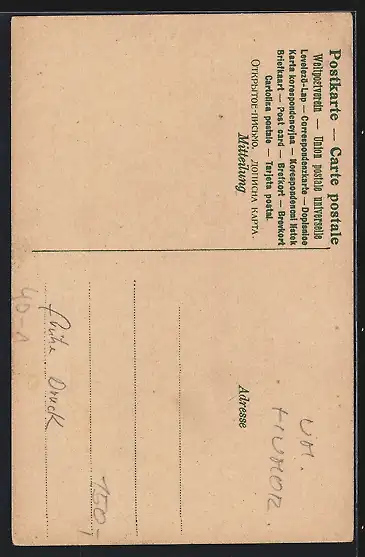 Postkarte — Carte postale
Weltpostverein — Union postale universelle
Levelező-Lap — Correspondenzkarte — Dopisnice
Karta korespondencyjna — Korespondencni listek
Briefkaart — Post card — Brefkort — Brevkort
Cartolina postale — Tarjeta postal.
ОТКРЫТОЕ ПИСЬМО. ДОПИСНА КАРТА.
Mitteilung
Adresse
UM.
HUMOR.
150,-
frühe Druck
40-